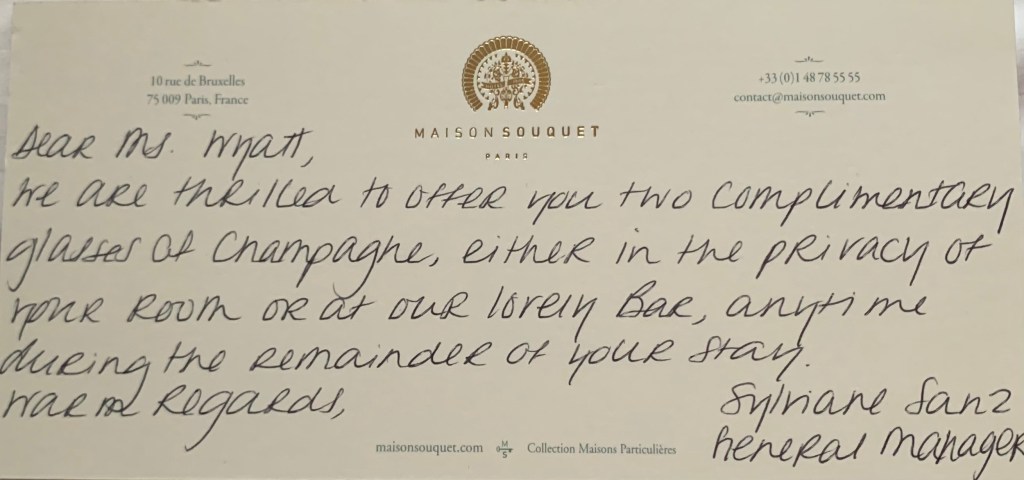 10 rue de Bruxelles
75 009 Paris, France
MAISON SOUQUET
PARIS
+33 (0)1 48 78 55 55
contact@maisonsouquet.com
Dear Ms. Wyatt,
We are thrilled to offer you two complimentary
glasses of Champagne, either in the privacy of
your room or at our lovely Bar, anytime
during the remainder of your stay.
Warm Regards,
Sylviane Sanz
General Manager
maisonsouquet.com M S Collection Maisons Particulières